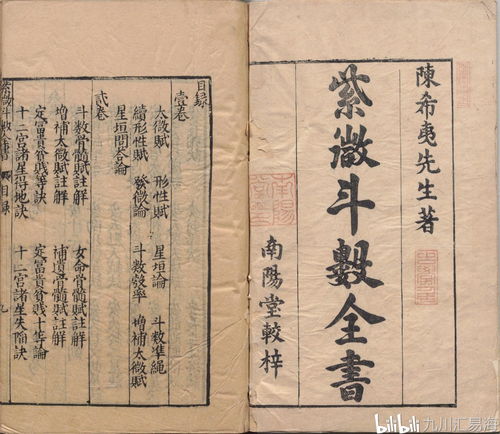 陳希夷先生著
紫微斗數全書
南陽堂較梓
目錄
壹卷
太微賦 形性賦 星垣論 斗數準繩
續形性賦 發微論 斗數彀率 增補太微賦
星垣問答論
貳卷
斗數骨髓賦註解 女命骨髓賦註解
增補太微賦註解 補遺骨髓賦註解
定富貴貧賤等訣 定富貴貧賤十等論
十二宮諸星得地訣 十二宮諸星失陷訣
紫微斗數全書 目錄
bilibili 九川汇易海